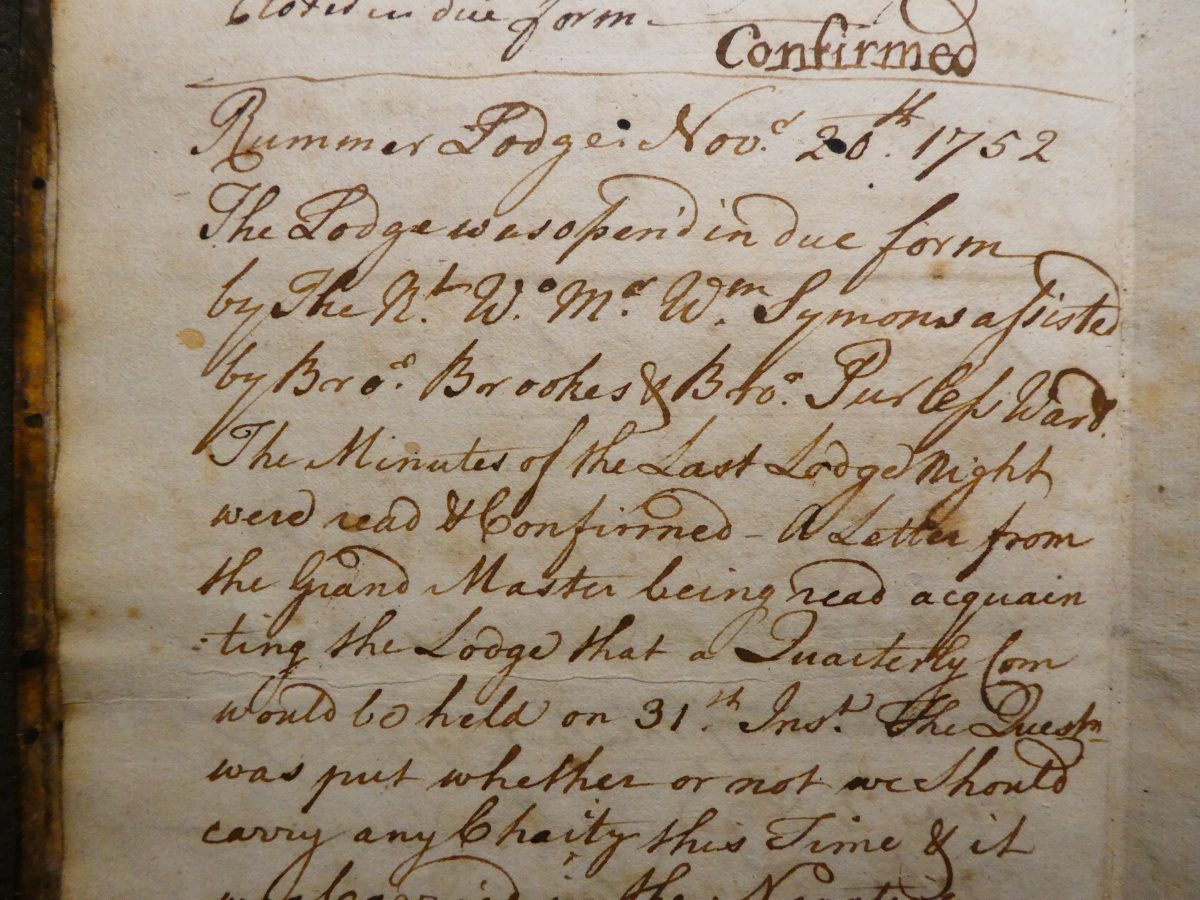 Closed in due form
Confirmed
Rummer Lodge: Nov.r 20.th 1752
The Lodge was open'd in due form
by The R.t W.o M.r W.m Symons assisted
by Bro.r Brookes & Bro.r Purless Ward.
The Minutes of the Last Lodge Night
were read & Confirmed - A Letter from
the Grand Master being read acquain
:ting the Lodge that a Quarterly Com
would be held on 31.th Inst. The Questn
was put whether or not we Should
carry any Chaity this Time & it
was carried in the Negative